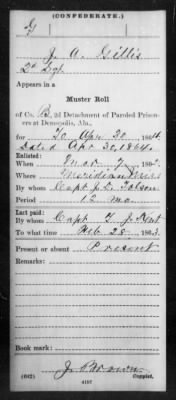 (CONFEDERATE.)
G
J. A. Gillis
2d Sgt
Appears in a
Muster Roll
of Co. B, 2d Detachment of Paroled Prison-
ers at Demopolis, Ala.,
for To Apr 30, 1864
Dated Apr 30, 1864.
Enlisted:
When Mar 7, 1862.
Where Meridian Miss
By whom Capt J. L.
Period 12 mo.
Last paid:
By whom Capt T. J.
To what time Feb 28, 1863.
Present or absent Present
Remarks:
Book mark:
J. Brown
(642) Copyist.
4157